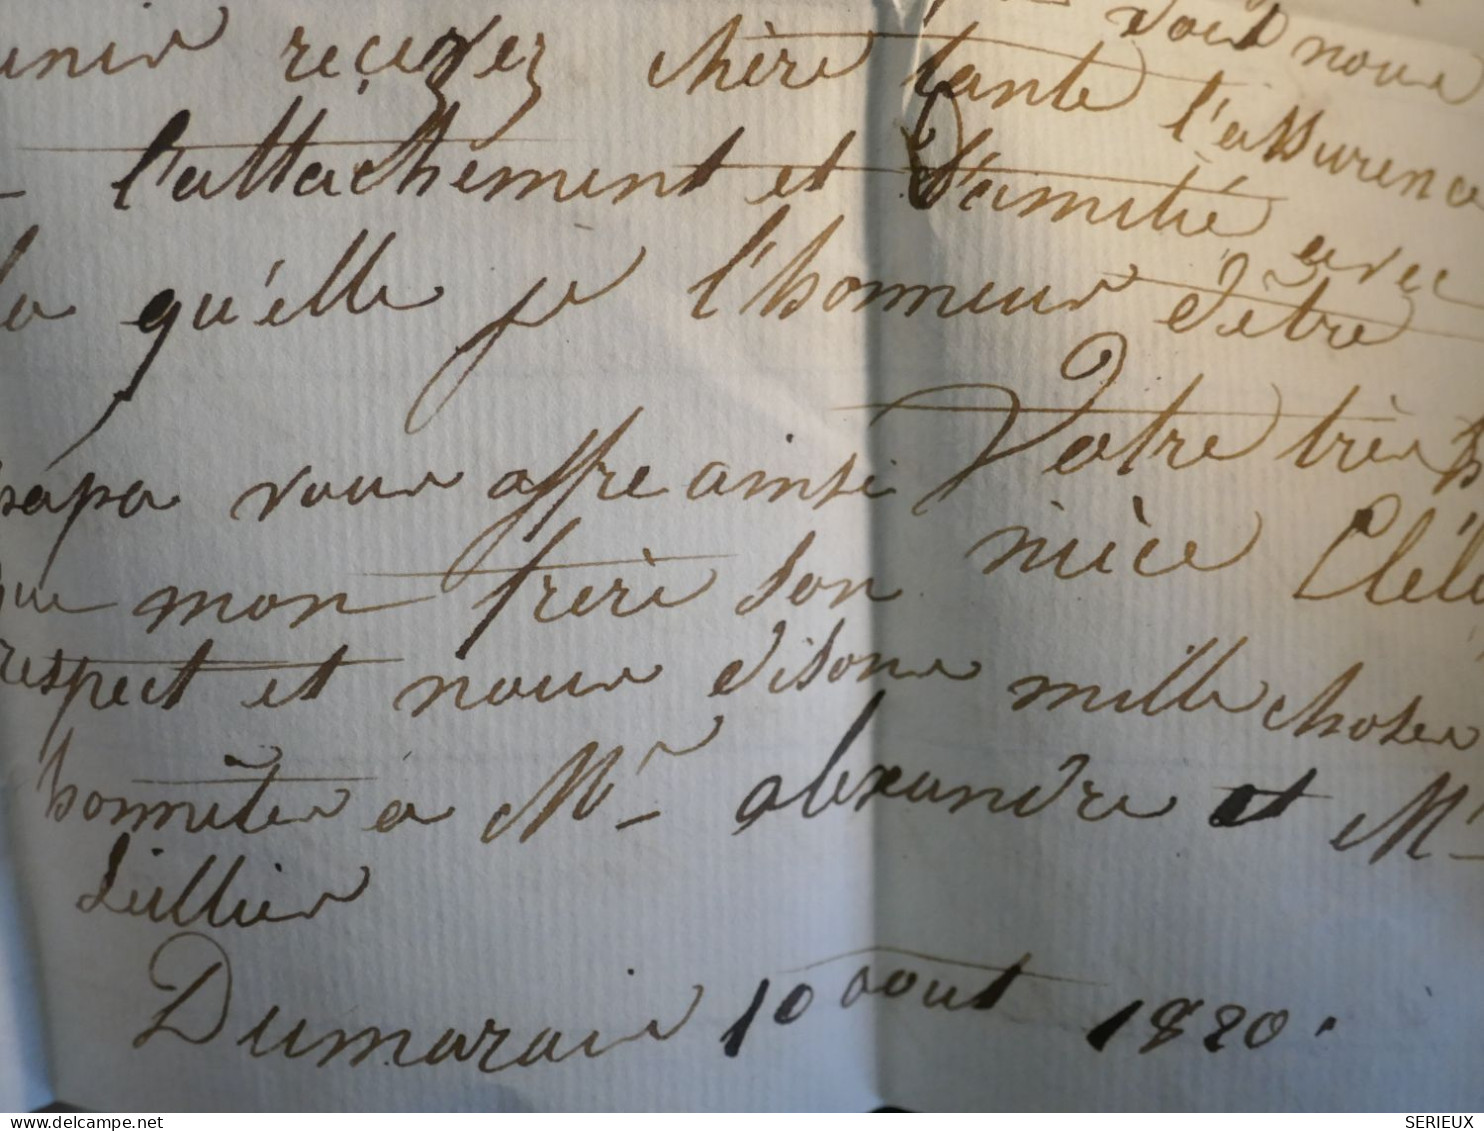 voir nous
unir reçevez chère tante l'assurence
l'attachement et d'amitié avec
la qu'elle je l'honneur d'être
Votre très h
papa vous offre ainsi
que mon frère son nièce Clélie
respect et nous disons mille choses
honnêtes a Mr alexandre et Mr
Lullier
Dumarais 10 aout 1820.
delcampe.net
SERIEUX